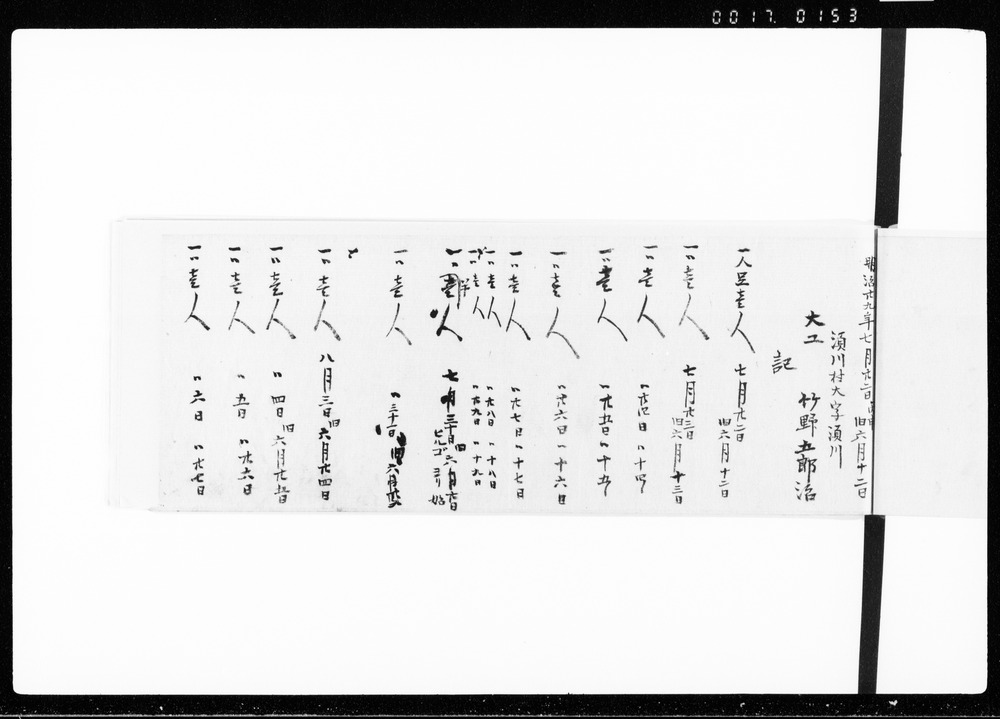 0017. 0153
明治廿九年七月廿二日 旧六月十二日
須川村大字須川
大工 竹野五郎治
記
一人足壱人 七月廿二日 旧六月十二日
一〃壱人 七月廿三日 旧六月十三日
一〃壱人 〃廿四日 〃十四
一〃壱人 〃廿五日 〃十五
一〃壱人 〃廿六日 〃十六日
一〃壱人 〃廿七日 〃十七日
一〃壱人 〃廿八日 〃十八日
一〃壱人 〃廿九日 〃十九日
一〃半人 七月三十日 旧六月 日 ヒルゴヨリ始
一〃壱人 〃三十一日 旧六月
一〃壱人 八月三日 旧六月廿四日
一〃壱人 〃四日 旧六月廿五日
一〃壱人 〃五日 〃廿六日
一〃壱人 〃六日 〃廿七日